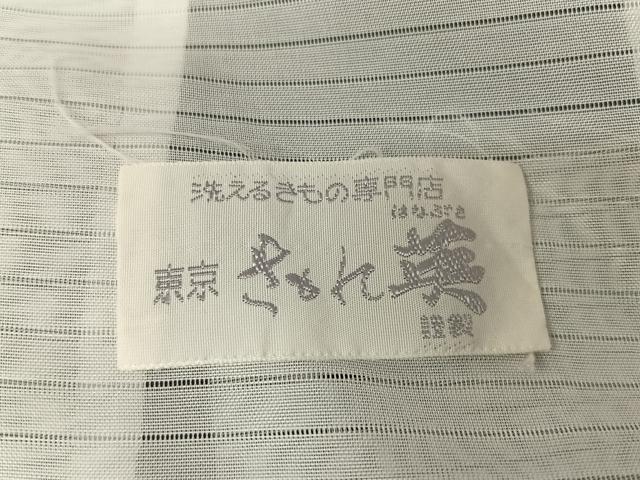 洗えるきもの専門店
はなぶさ
東京 きもん英
謹製